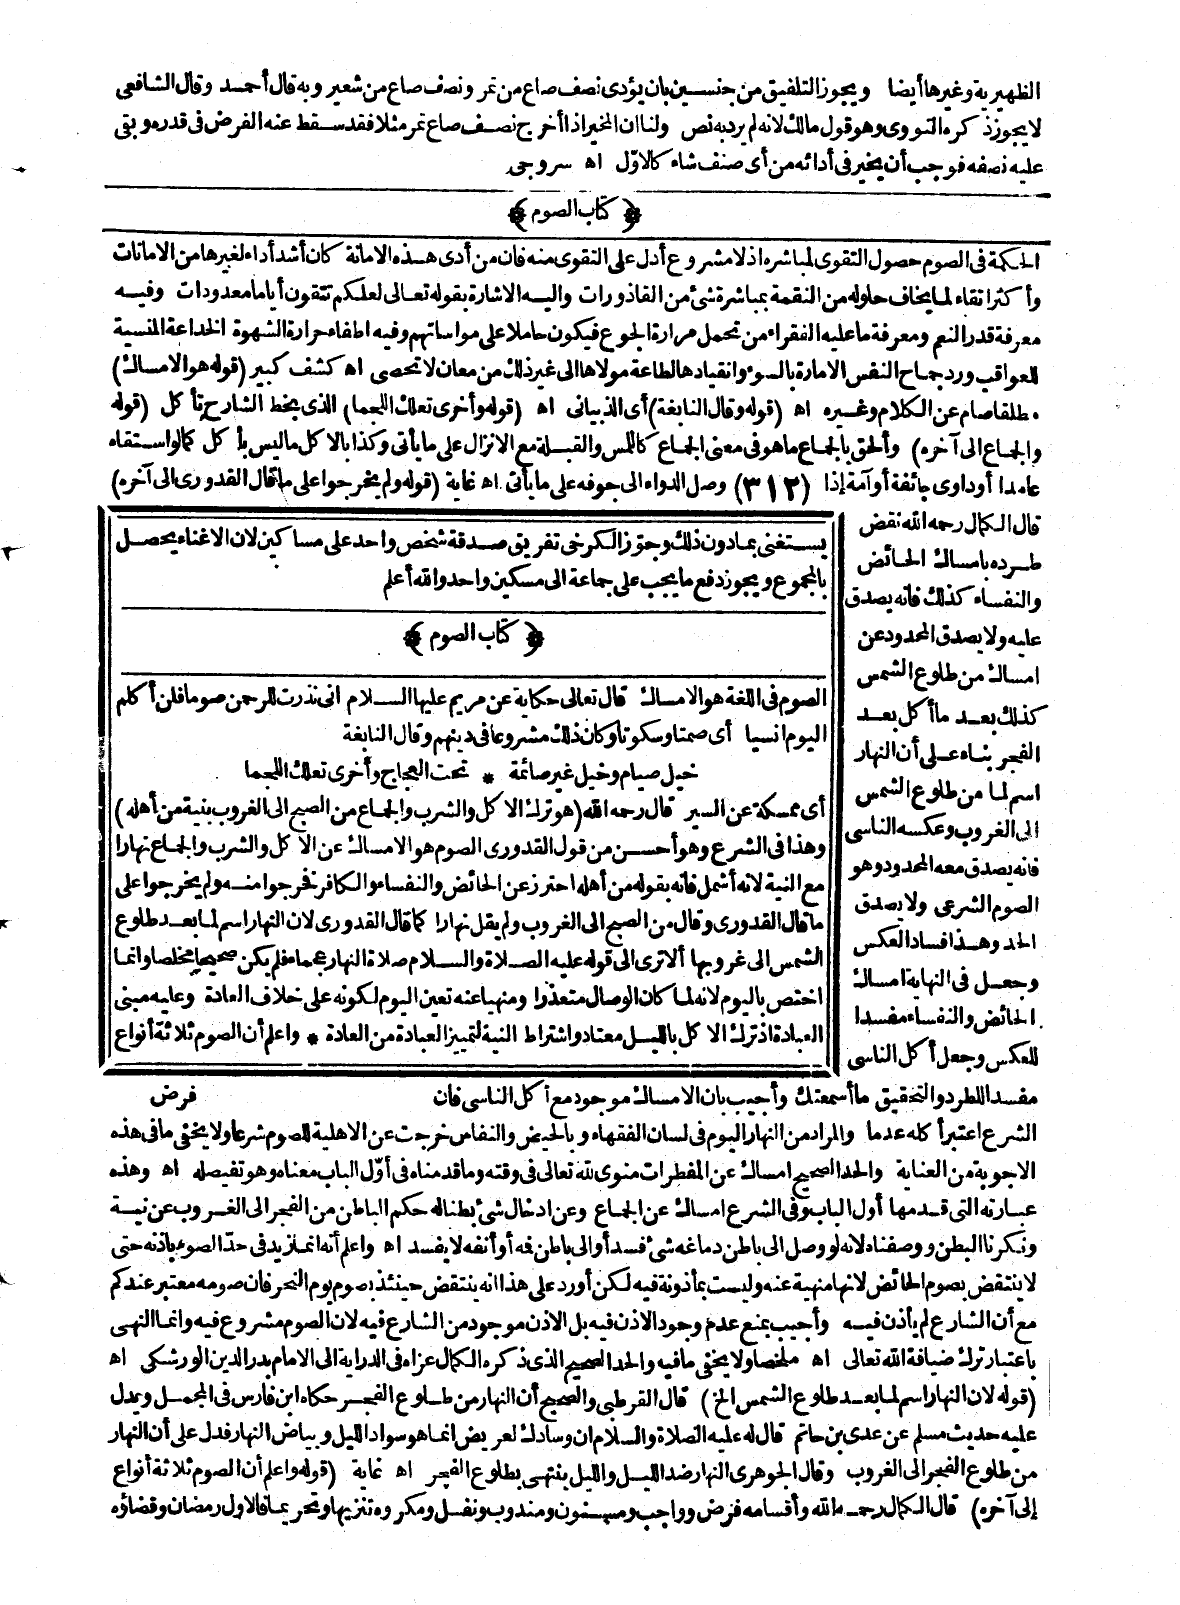 الظهيرية وغيرها أيضا ويجوز التلفيق من جنسين بان يؤدى نصف صاع من تمر ونصف صاع من شعير وبه قال أحمد وقال الشافعى
لا يجوز ذكره النووى وهو قول مالك لانه لم يرد به نص ولنا ان المخير اذا أخرج نصف صاع تمر مثلا فقد سقط عنه الفرض فى قدره وبقى
عليه نصفه فوجب أن يخير فى أدائه من أى صنف شاء كالاوّل اه سروجى
﴿ كتاب الصوم ﴾
الحكمة فى الصوم حصول التقوى لمباشره اذ لا مشروع أدل على التقوى منه فان من أدى هذه الامانة كان أشد أداء لغيرها من الامانات
وأكثر اتقاء لما يخاف حلوله من النقمة بمباشرة شئ من القاذورات واليه الاشارة بقوله تعالى لعلكم تتقون أياما معدودات وفيه
معرفة قدر النعم ومعرفة ما عليه الفقراء من تحمل مرارة الجوع فيكون حاملا على مواساتهم وفيه اطفاء حرارة الشهوة الخداعة المنسية
للعواقب ورد جماح النفس الامارة بالسوء وانقيادها لطاعة مولاها الى غير ذلك من معان لا تحصى اه كشف كبير (قوله هو الامساك)
مطلقا صام عن الكلام وغيره اه (قوله وقال النابغة) أى الذبيانى اه (قوله وأخرى تعلك اللجما) الذى بخط الشارح تأكل (قوله
والجماع الى آخره) وألحق بالجماع ما هو فى معنى الجماع كاللمس والقبلة مع الانزال على ما يأتى وكذا بالاكل ما ليس بأكل كما لو استقاء
عامدا أو داوى جائفة أو آمة إذا (٣١٢) وصل الدواء الى جوفه على ما يأتى اه غاية (قوله ولم يخرجوا على ما قال القدورى الى آخره)
قال الكمال رحمه الله نقض
طرده بامساك الحائض
والنفساء كذلك فانه يصدق
عليه ولا يصدق المحدود عن
امساك من طلوع الشمس
كذلك بعد ما أكل بعد
الفجر بناء على أن النهار
اسم لما من طلوع الشمس
الى الغروب وعكسه الناسى
فانه يصدق معه المحدود وهو
الصوم الشرعى ولا يصدق
الحد وهذا فساد العكس
وجعل فى النهاية امساك
الحائض والنفساء مفسدا
للعكس وجعل أكل الناسى
يستغنى بما دون ذلك وجوّز الكرخى تفريق صدقة شخص واحد على مساكين لان الاغناء يحصل
بالمجموع ويجوز دفع ما يجب على جماعة الى مسكين واحد والله أعلم
﴿ كتاب الصوم ﴾
الصوم فى اللغة هو الامساك قال تعالى حكاية عن مريم عليها السلام انى نذرت للرحمن صوما فلن أكلم
اليوم انسيا أى صمتا وسكوتا وكان ذلك مشروعا فى دينهم وقال النابغة
خيل صيام وخيل غير صائمة * تحت العجاج وأخرى تعلك اللجما
أى ممسكة عن السير قال رحمه الله (هو ترك الاكل والشرب والجماع من الصبح الى الغروب بنية من أهله)
وهذا فى الشرع وهو أحسن من قول القدورى الصوم هو الامساك عن الاكل والشرب والجماع نهارا
مع النية لانه أشمل فانه بقوله من أهله احترز عن الحائض والنفساء والكافر فخرجوا منه ولم يخرجوا على
ما قال القدورى وقال من الصبح الى الغروب ولم يقل نهارا كما قال القدورى لان النهار اسم لما بعد طلوع
الشمس الى غروبها ألا ترى الى قوله عليه الصلاة والسلام صلاة النهار عجماء فلم يكن صحيحا مخلصا وانما
اختص باليوم لانه لما كان الوصال متعذرا ومنهيا عنه تعين اليوم لكونه على خلاف العادة وعليه مبنى
العبادة اذ ترك الاكل بالليل معتاد واشتراط النية لتمييز العبادة من العادة * واعلم أن الصوم ثلاثة أنواع
فرض
مفسدا للطرد والتحقيق ما أسمعتك وأجيب بان الامساك موجود مع أكل الناسى فان
الشرع اعتبر أكله عدما والمراد من النهار اليوم فى لسان الفقهاء وبالحيض والنفاس خرجت عن الاهلية للصوم شرعا ولا يخفى ما فى هذه
الاجوبة من العناية والحد الصحيح امساك عن المفطرات منوى لله تعالى فى وقته وما قدمناه فى أوّل الباب معناه وهو تفصيله اه وهذه
عبارته التى قدمها أول الباب وفى الشرع امساك عن الجماع وعن ادخال شئ بطنا له حكم الباطن من الفجر الى الغروب عن نية
ونكرنا البطن ووصفناه لانه لو وصل الى باطن دماغه شئ فسد أو الى باطن فه أو أنفه لا يفسد اه واعلم أنه انما زيد فى حدّ الصوم باذنه حتى
لا ينتقض بصوم الحائض لانها منهية عنه وليست بمأذونة فيه لكن أورد على هذا انه ينتقض حينئذ بصوم يوم النحر فان صومه معتبر عندكم
مع أن الشارع لم يأذن فيه وأجيب بمنع عدم وجود الاذن فيه بل الاذن موجود من الشارع فيه لان الصوم مشروع فيه وانما النهى
باعتبار ترك ضيافة الله تعالى اه ملخصا ولا يخفى ما فيه والحد الصحيح الذى ذكره الكمال عزاه فى الدراية الى الامام بدر الدين الورشكى اه
(قوله لان النهار اسم لما بعد طلوع الشمس الخ) قال القرطبى والصحيح أن النهار من طلوع الفجر حكاه ابن فارس فى المجمل ويدل
عليه حديث مسلم عن عدى بن حاتم قال له عليه الصلاة والسلام ان وسادك لعريض انما هو سواد الليل وبياض النهار فدل على أن النهار
من طلوع الفجر الى الغروب وقال الجوهرى النهار ضد الليل والليل ينتهى بطلوع الفجر اه غاية (قوله واعلم أن الصوم ثلاثة أنواع
إلى آخره) قال الكمال رحمه الله وأقسامه فرض وواجب ومسنون ومندوب ونفل ومكروه تنزيها وتحريما فالاول رمضان وقضاؤه